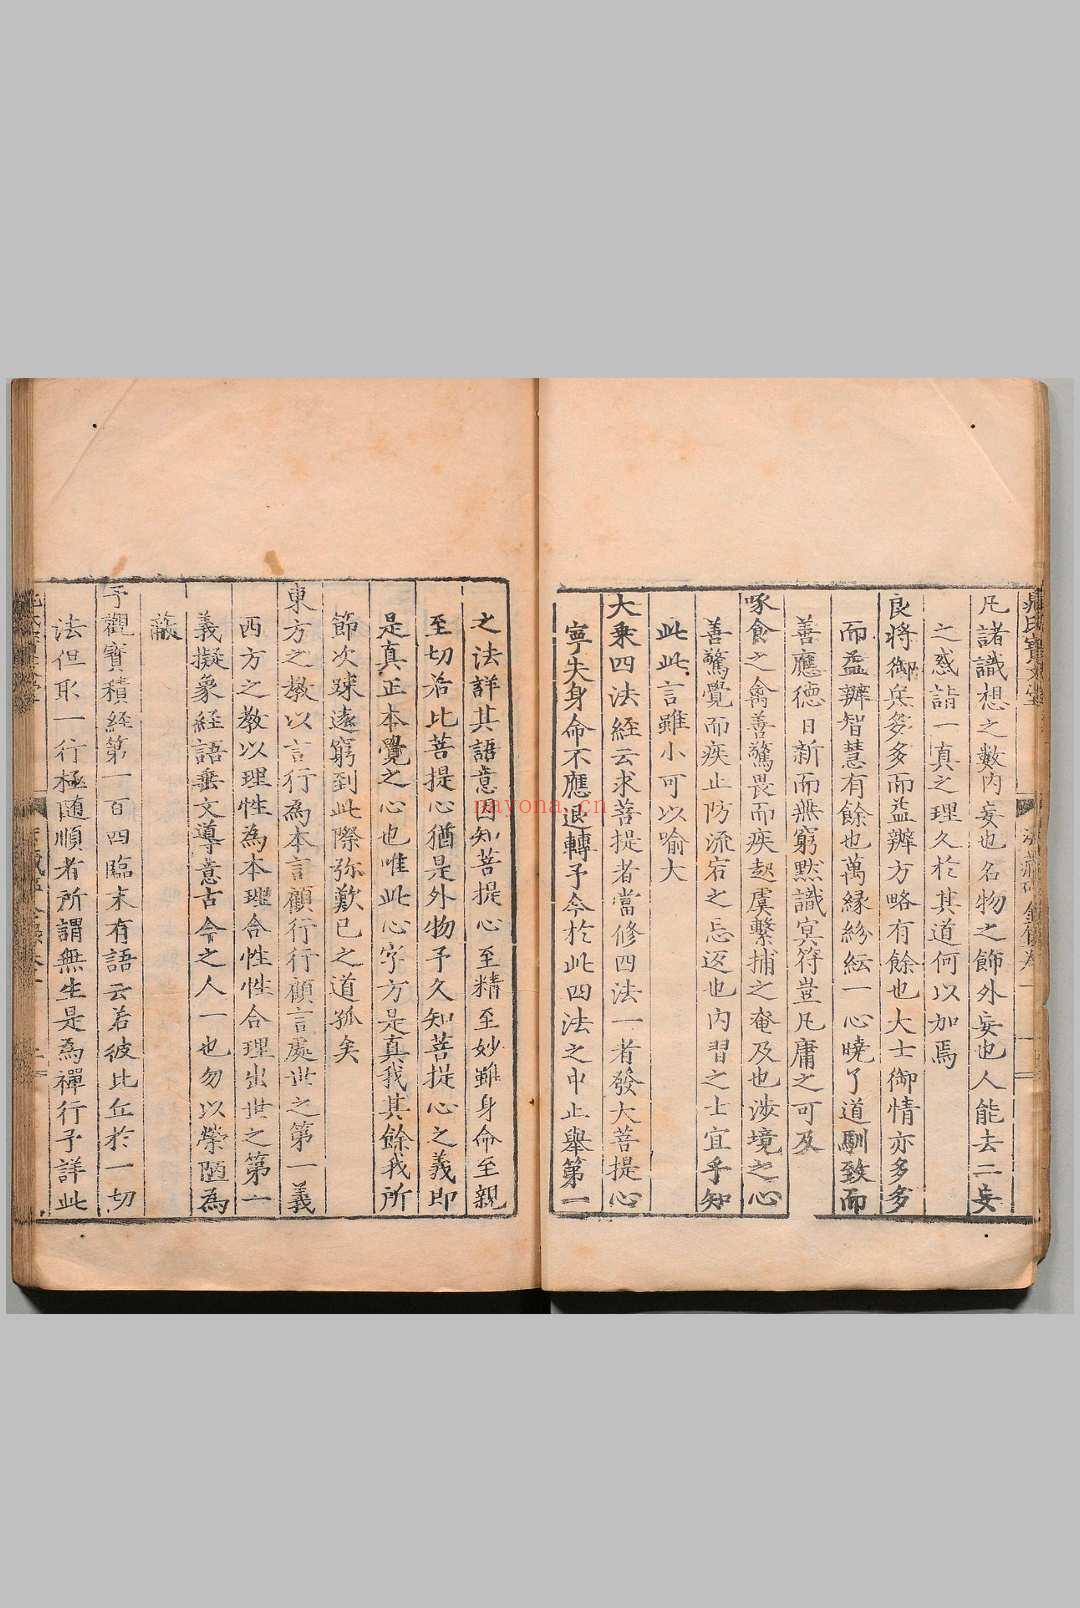 晁氏寶文堂
凡諸識想之數內妄也名物之飾外妄也人能去二妄
之惑詣一真之理久於其道何以加焉
良將御兵多多而益辦方略有餘也大士御情亦多多
而益辦智慧有餘也萬緣紛紜一心曉了道馴致而
善應德日新而無窮默識冥符豈凡庸之可及
啄食之禽善驚畏而疾起虞繫捕之奄及也涉境之心
善驚覺而疾止防流宕之忘返也內習之士宜乎知
此此言雖小可以喻大
大乘四法經云求菩提者當修四法一者發大菩提心
寧失身命不應退轉予今於此四法之中止舉第一
之法詳其語意因知菩提心至精至妙雖身命至親
至切治比菩提心猶是外物予久知菩提心之義即
是真正本覺之心也唯此心字方是真我其餘我所
節次踈遠窮到此際弥歎已之道孤矣
東方之教以言行為本言顧行行顧言處世之第一義
西方之教以理性為本理合性性合理出世之第一
義擬象経語垂文導意古今之人一也勿以榮陋為
蔽
予觀寶積経第一百四臨末有語云若彼比丘於一切
法但取一行極随順者所謂無生是為禪行予詳此
payona.cn